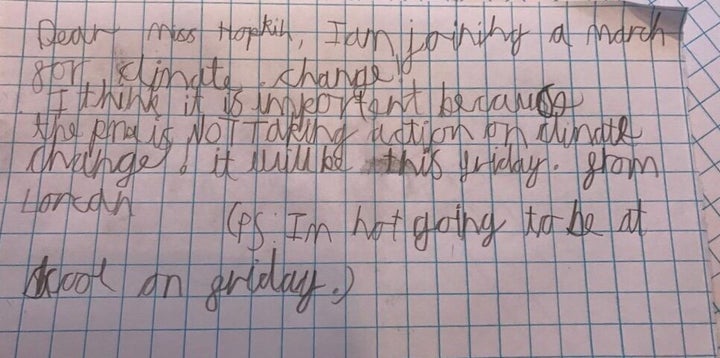 Dear miss Hopkin, I am joining a march
for climate change!
I think it is important because
the pm is NOT Taking action on climate
change, it will be this friday. from
Lorcan
(PS: Im not going to be at
skool on friday.)